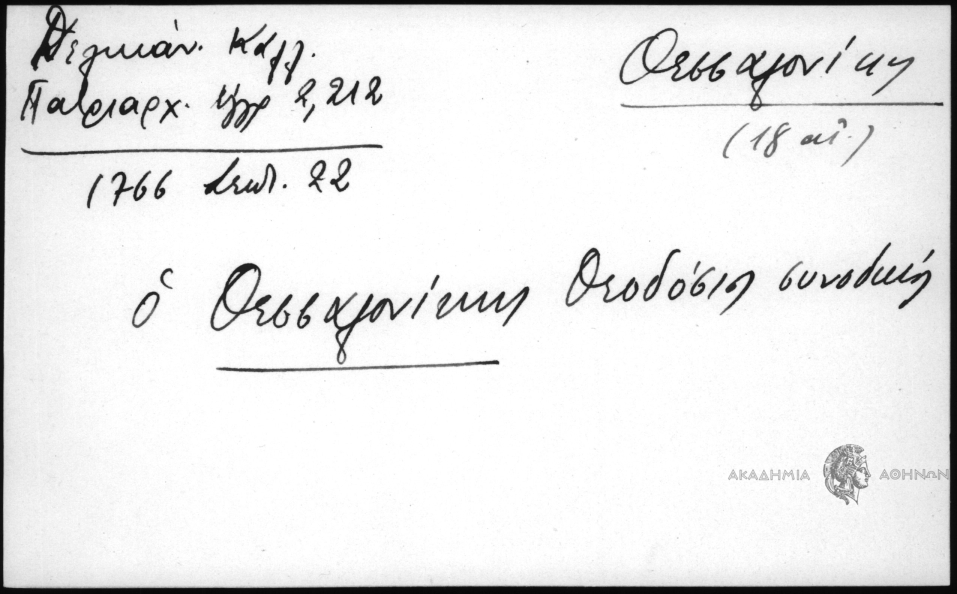 Δελικάν. Καλλ.
Πατριαρχ. ἔγγρ 2,212
1766 Σεπτ. 22
Θεσσαλονίκη
(18 αἰ.)
ὁ Θεσσαλονίκης Θεοδόσιος συνοδικός
ΑΚΑΔΗΜΙΑ ΑΘΗΝΩΝ